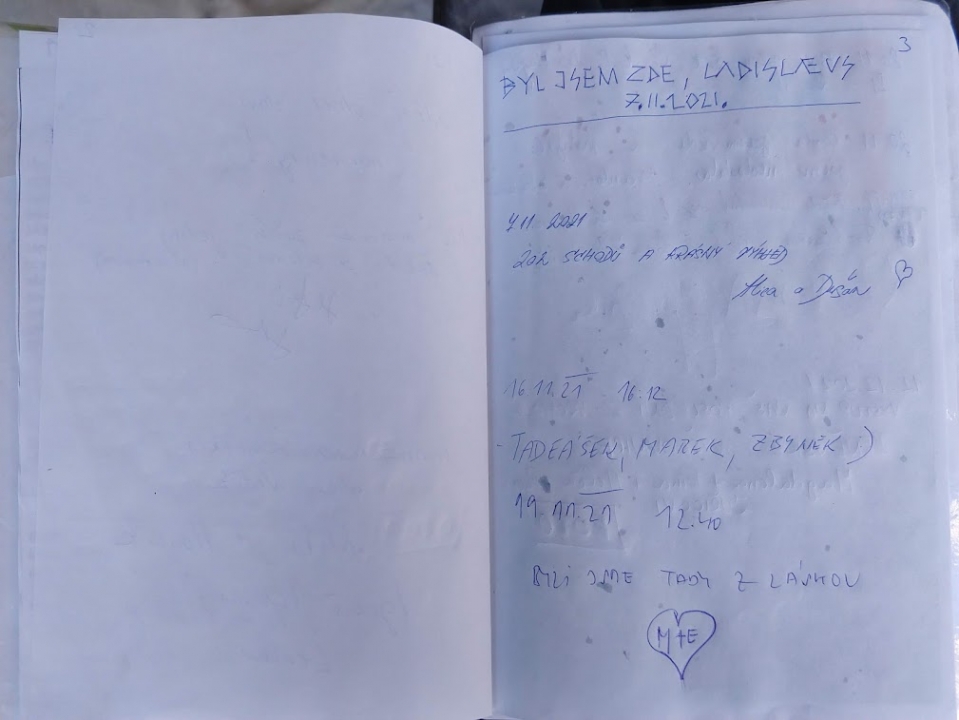 3
BYL JSEM ZDE, LADISLÆVS
7.11.2021.
7.11 2021
202 SCHODŮ A KRÁSNÝ VÝHLED
a Dušan
16.11.21 16.12
- TADEÁŠEK, MAREK, ZBYNĚK :)
19.11.21 12.40
BYLI JSME TADY Z LÁSKOU
M+E